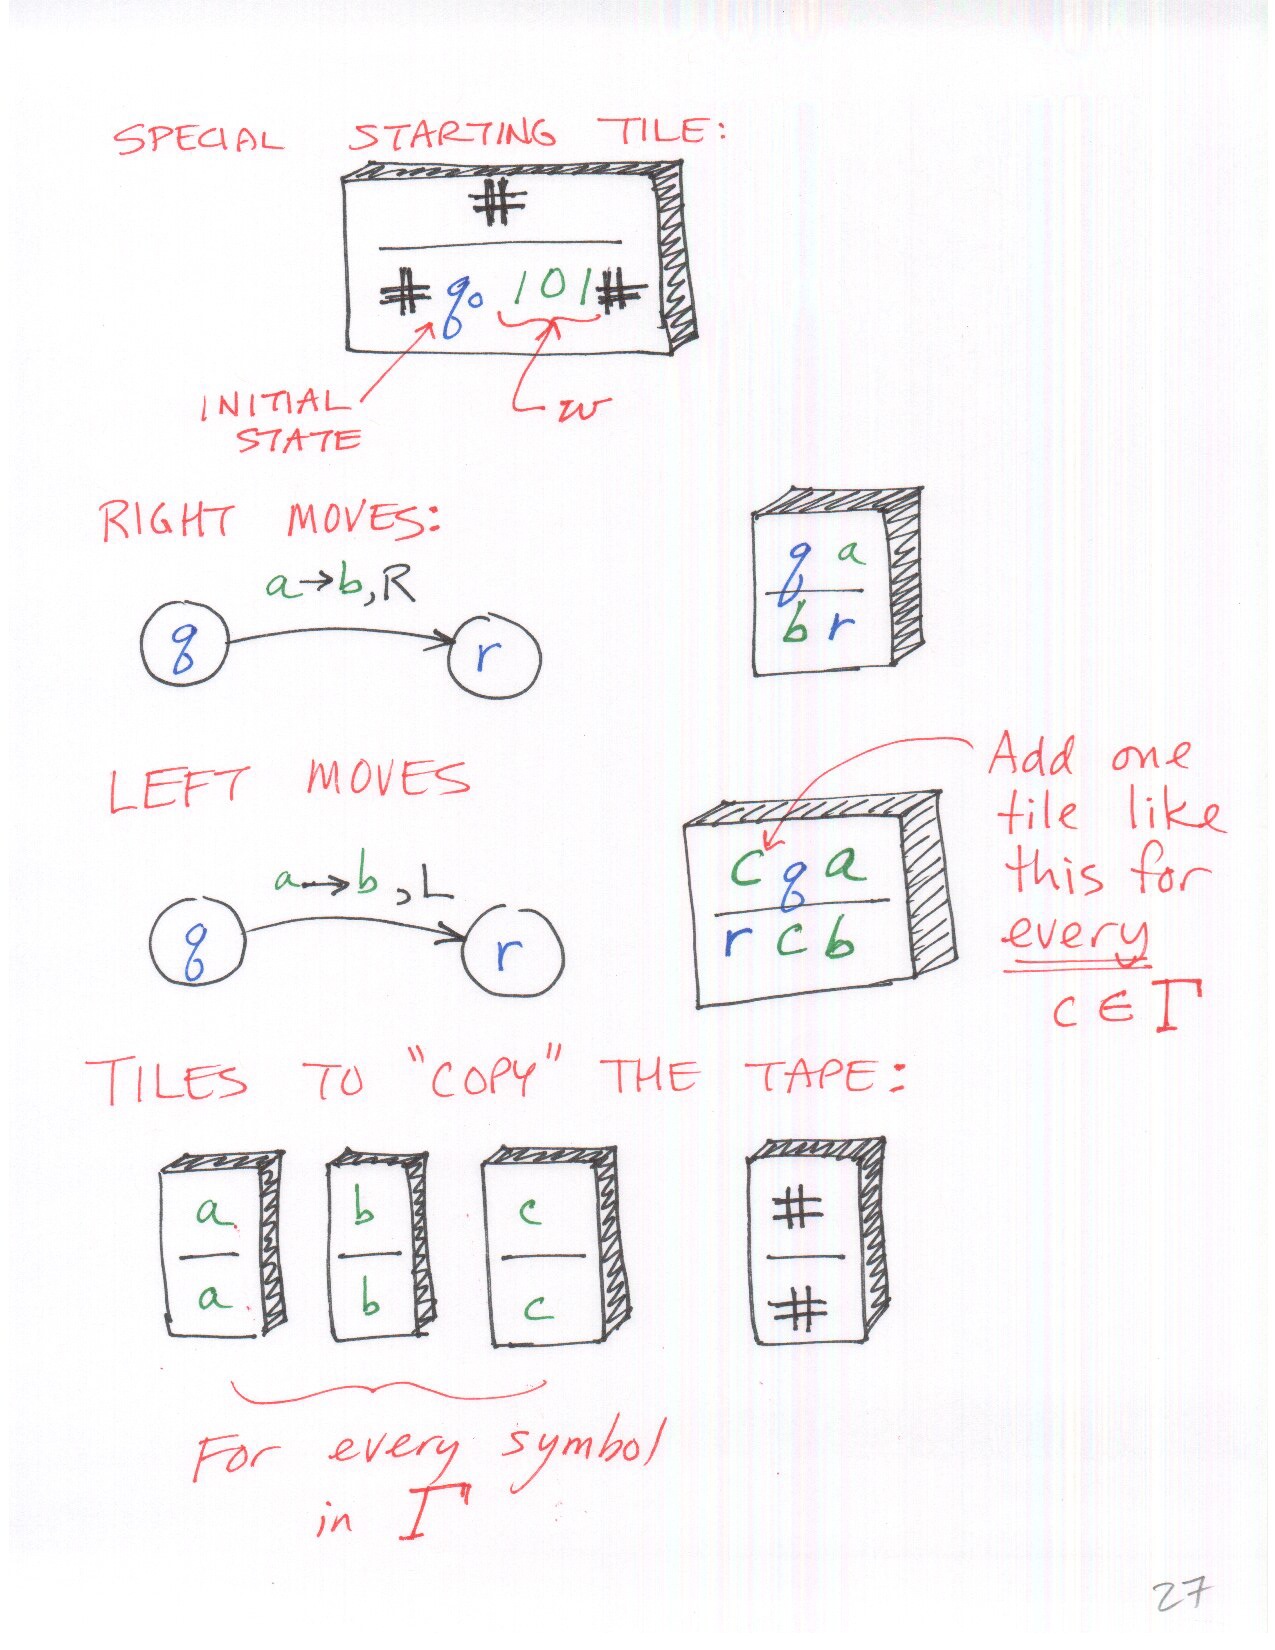 SPECIAL STARTING TILE:
#
# q0 101#
INITIAL
STATE
w
RIGHT MOVES:
a→b,R
q r
q a
b r
LEFT MOVES
a→b,L
q r
c q a
r c b
Add one
tile like
this for
every
c ∈ Γ
TILES TO "COPY" THE TAPE:
a b c #
a b c #
For every symbol
in Γ
27